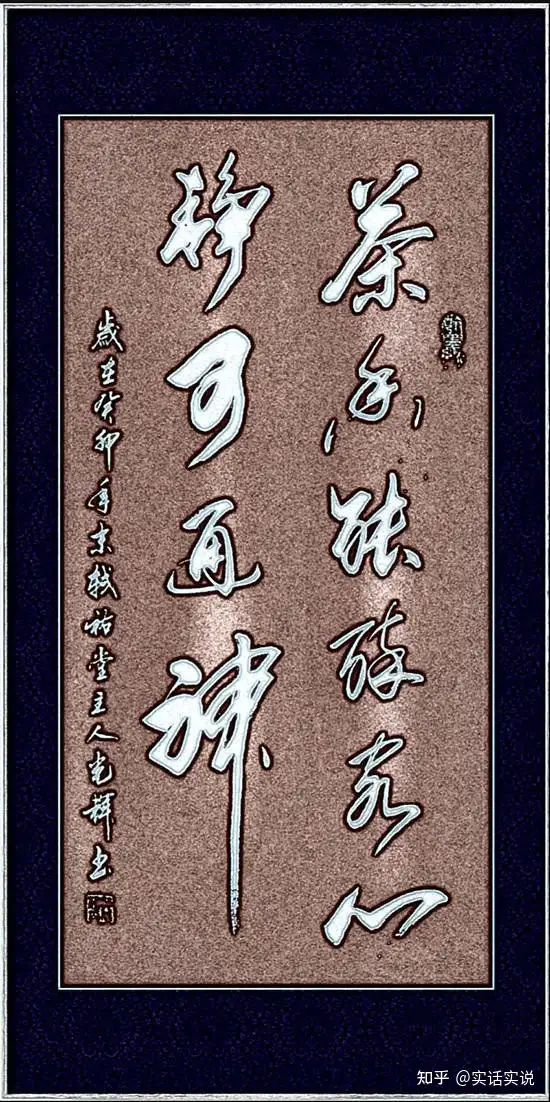 茶香能醉客心
静可通神
歲在癸卯年末轼祐堂主人光輝书
知乎 @实话实说